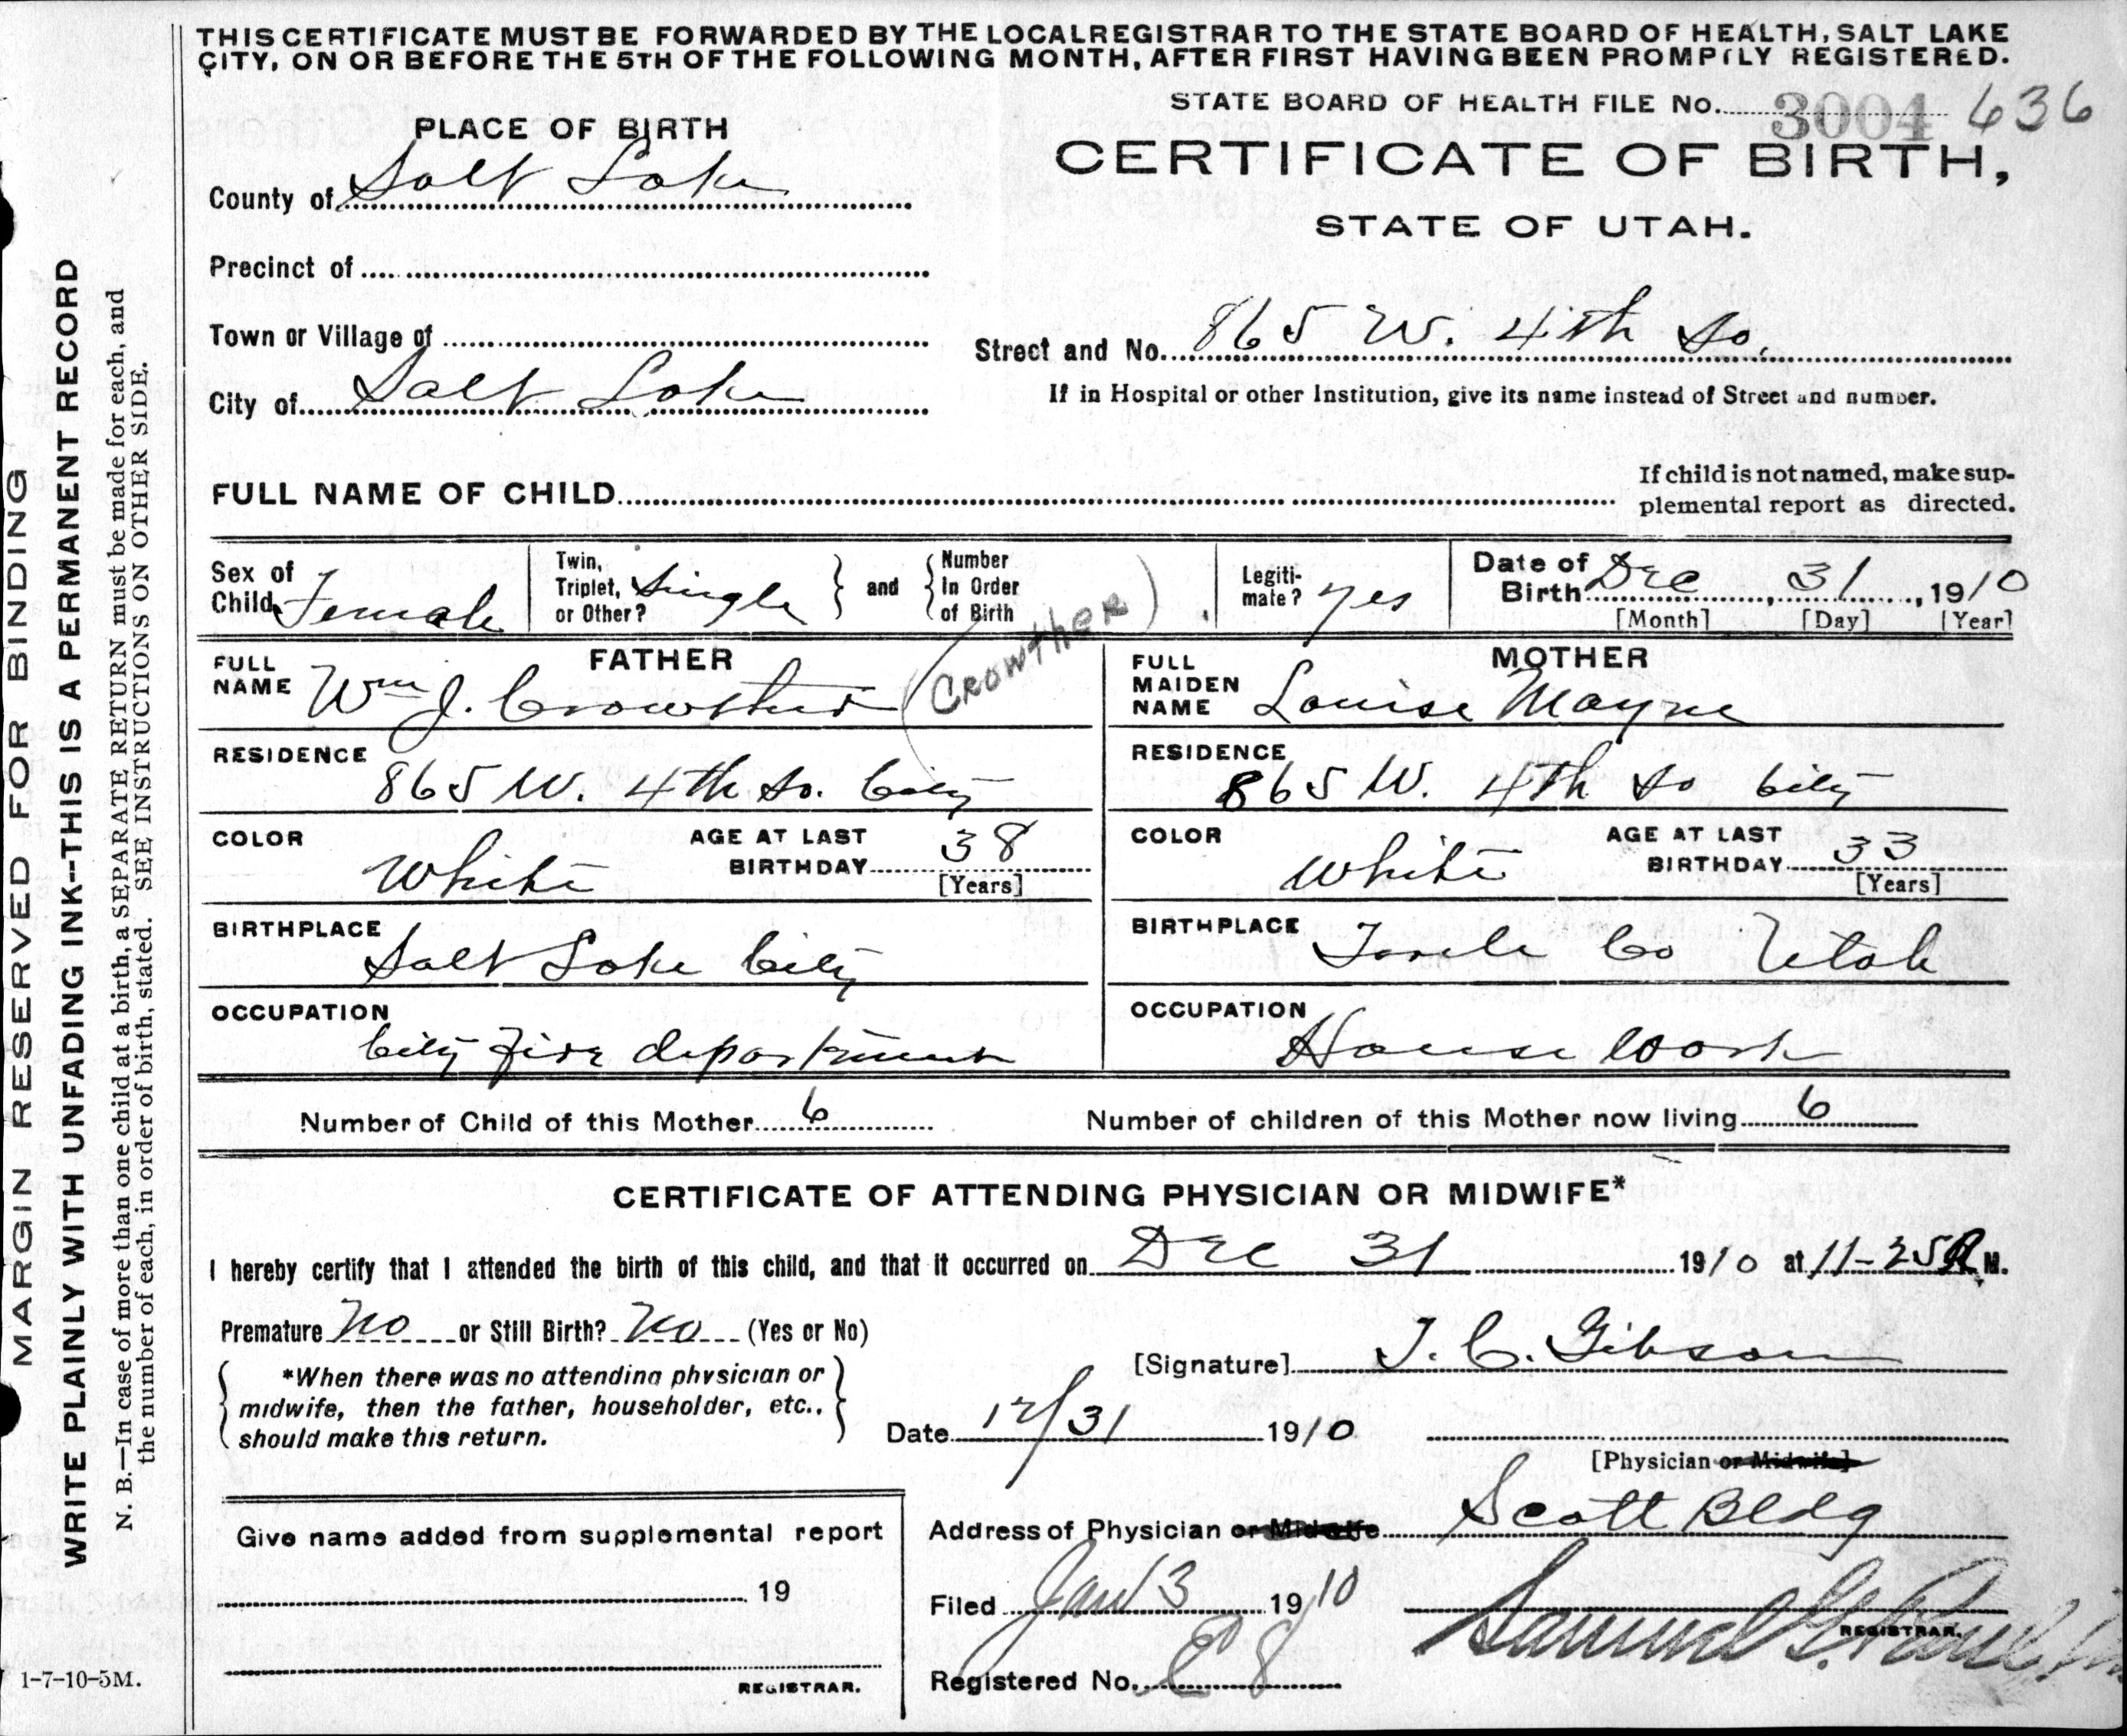 THIS CERTIFICATE MUST BE FORWARDED BY THE LOCAL REGISTRAR TO THE STATE BOARD OF HEALTH, SALT LAKE
CITY, ON OR BEFORE THE 5TH OF THE FOLLOWING MONTH, AFTER FIRST HAVING BEEN PROMPTLY REGISTERED.
STATE BOARD OF HEALTH FILE No. 3004 636
PLACE OF BIRTH
CERTIFICATE OF BIRTH,
County of Salt Lake
STATE OF UTAH.
Precinct of
Town or Village of
Street and No. 865 W. 4th So.
City of Salt Lake
If in Hospital or other Institution, give its name instead of Street and number.
FULL NAME OF CHILD
If child is not named, make sup-
plemental report as directed.
Sex of Child Female
Twin, Triplet, or Other? Single
and Number In Order of Birth
Legiti-mate? yes
Date of Birth Dec, 31, 1910
[Month] [Day] [Year]
FATHER
FULL NAME Wm J. Crowther (Crowther)
MOTHER
FULL MAIDEN NAME Louise Mayne
RESIDENCE 865 W. 4th So. City
RESIDENCE 865 W. 4th So City
COLOR White AGE AT LAST BIRTHDAY 38 [Years]
COLOR White AGE AT LAST BIRTHDAY 33 [Years]
BIRTHPLACE Salt Lake City
BIRTHPLACE Tooele Co Utah
OCCUPATION City Fire department
OCCUPATION House Work
Number of Child of this Mother 6 Number of children of this Mother now living 6
CERTIFICATE OF ATTENDING PHYSICIAN OR MIDWIFE*
I hereby certify that I attended the birth of this child, and that it occurred on Dec 31 1910 at 11-25 A M.
Premature No or Still Birth? No (Yes or No)
[Signature] T. C. Gibson
*When there was no attending physician or
midwife, then the father, householder, etc.,
should make this return.
Date 12/31 1910
[Physician or Midwife]
Address of Physician or Midwife Scott Bldg
Give name added from supplemental report
19
REGISTRAR.
Filed Jan 3 1910
Samuel G. Paul
REGISTRAR.
Registered No. 8
MARGIN RESERVED FOR BINDING
WRITE PLAINLY WITH UNFADING INK--THIS IS A PERMANENT RECORD
N. B.—In case of more than one child at a birth, a SEPARATE RETURN must be made for each, and
the number of each, in order of birth, stated. SEE INSTRUCTIONS ON OTHER SIDE.
1-7-10-5M.